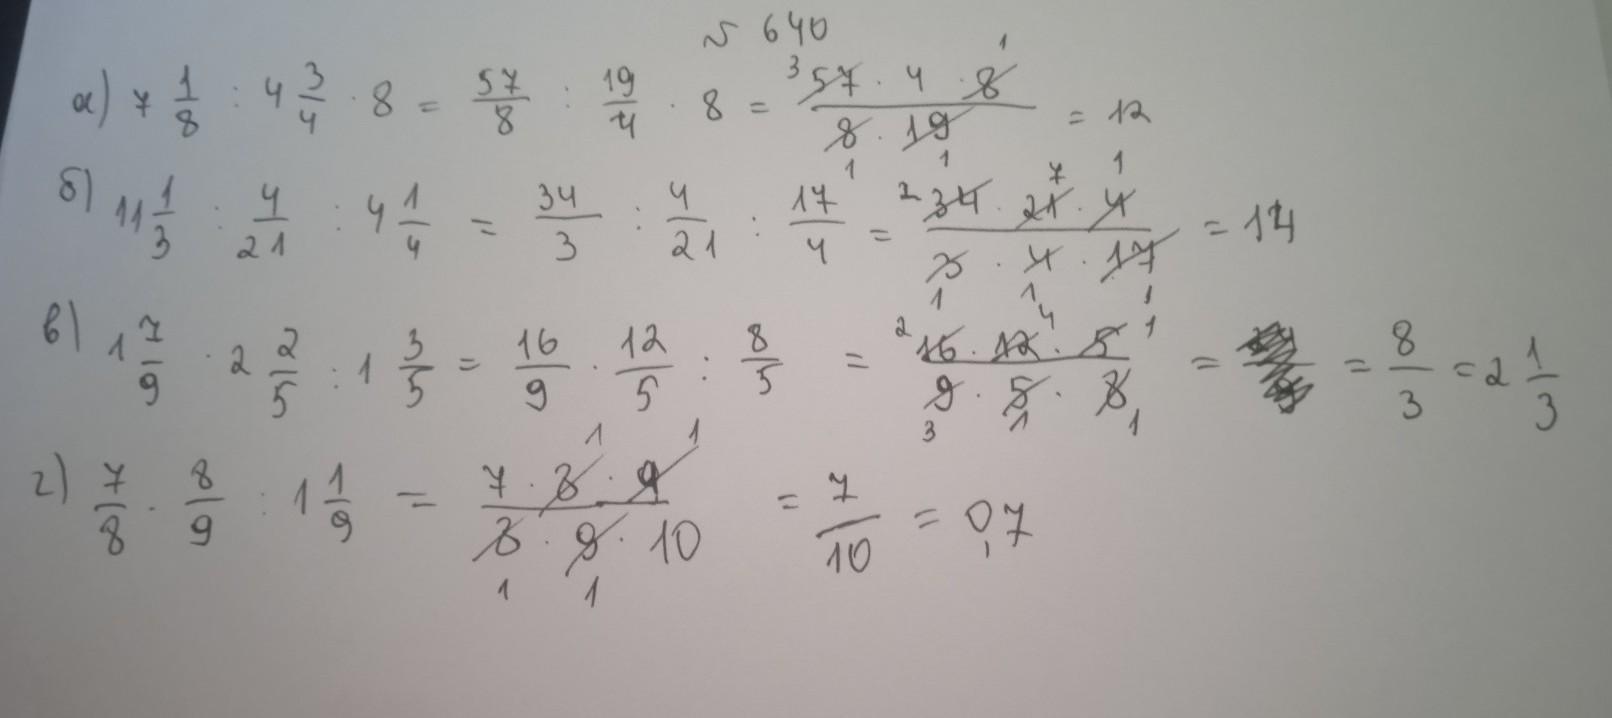 № 640
а) 7 1/8 : 4 3/4 · 8 = 57/8 : 19/4 · 8 = (57 · 4 · 8)/(8 · 19) = 12
3 1 1 1
б) 11 1/3 : 4/21 : 4 1/4 = 34/3 : 4/21 : 17/4 = (34 · 21 · 4)/(3 · 4 · 17) = 14
2 7 1 1 1 1
в) 1 7/9 · 2 2/5 : 1 3/5 = 16/9 · 12/5 : 8/5 = (16 · 12 · 5)/(9 · 5 · 8) = = 8/3 = 2 1/3
2 4 1 3 1 1
г) 7/8 · 8/9 : 1 1/9 = (7 · 8 · 9)/(8 · 9 · 10) = 7/10 = 0,7
1 1 1 1